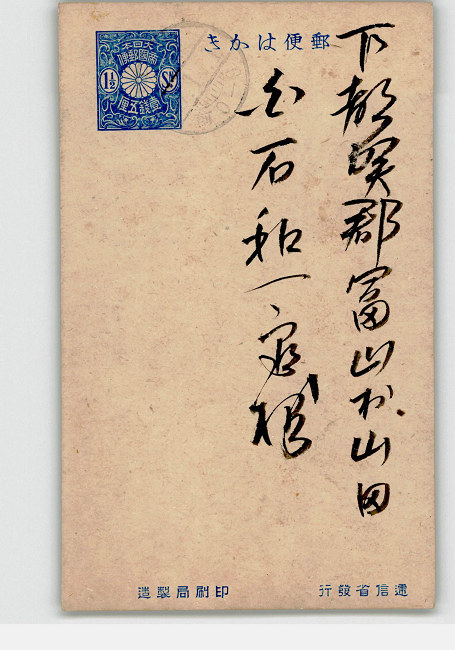 郵便はかき
大日本
帝國郵便
1½
壹錢五厘
下都賀郡富山村山田
白石和一様
遞信省發行
印刷局製造